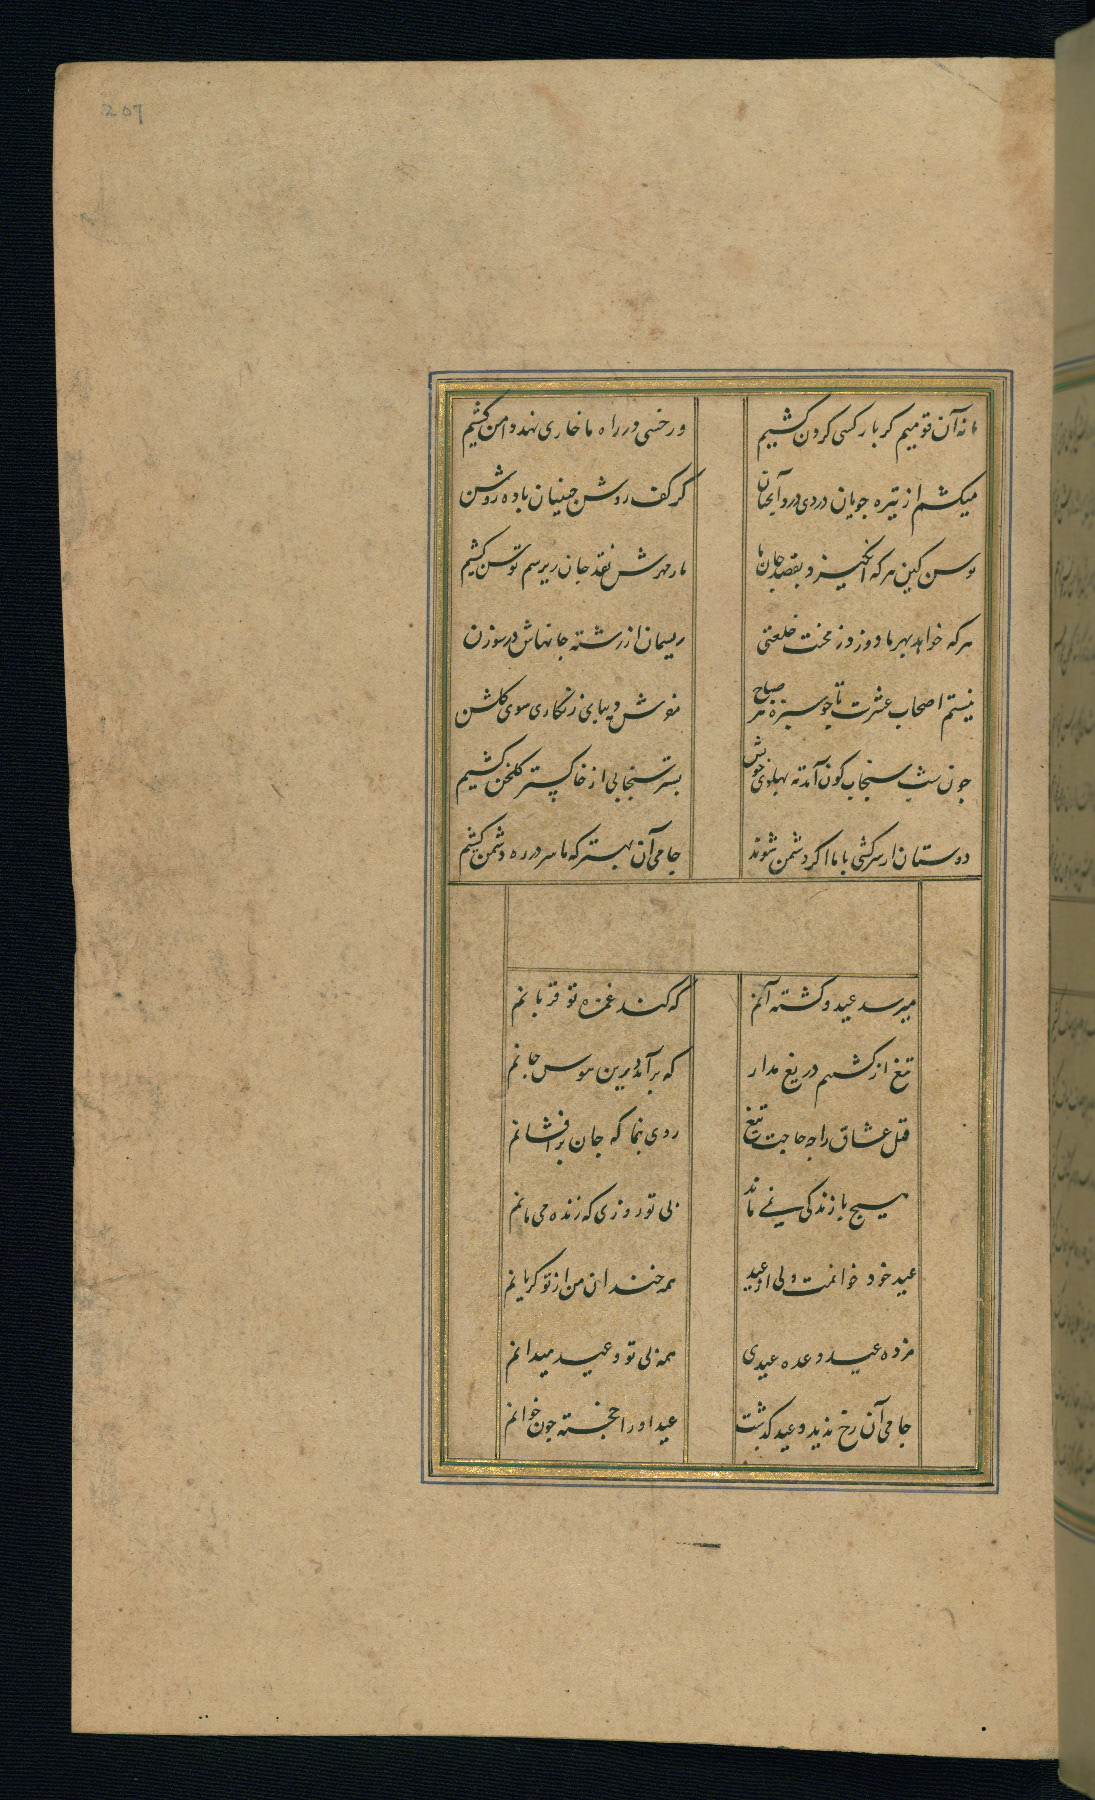 207
ما نه آن قومیم کز بار کسی کردن کشیم
ور خسی در راه ما خاری نهد دامن کشیم
میکشم از تیره جویان دردی درد آنچنان
کز کف روشن جبینان باده روشن
توسن کین هر که انگیزد بقصد جان ما
ما ز مهرش نقد جان زیر سم توسن کشیم
هر که خواهد بهر ما دوزد ز محنت خلعتی
ریسمان از رشته جانهاش در سوزن
نیستم اصحاب عشرت تا چو سبزه هر صباح
مفرش دیبای زنگاری سوی گلشن
چون شب سنجاب گون آمد ته پهلوی خویش
بستر سنجابی از خاکستر گلخن کشیم
دوستان از سرکشی با ما اگر دشمن شوند
جامی آن بهتر که ما سر در ره دشمن کشیم
میرسد عید و کشته آنم
که کند غمزه تو قربانم
تیغ از کشتنم دریغ مدار
که برآمد درین هوس جانم
قتل عشاق را چه حاجت تیغ
روی بنما که جان برافشانم
هیچ با زندگی نمی ماند
بی تو روزی که زنده می مانم
عید خود خوانمت ولی از عید
همه خندان من از تو گریانم
مژده عید و وعده عیدی
همه بی تو وعید میدانم
جامی آن رخ ندید و عید گذشت
عید او را خجسته چون خوانم